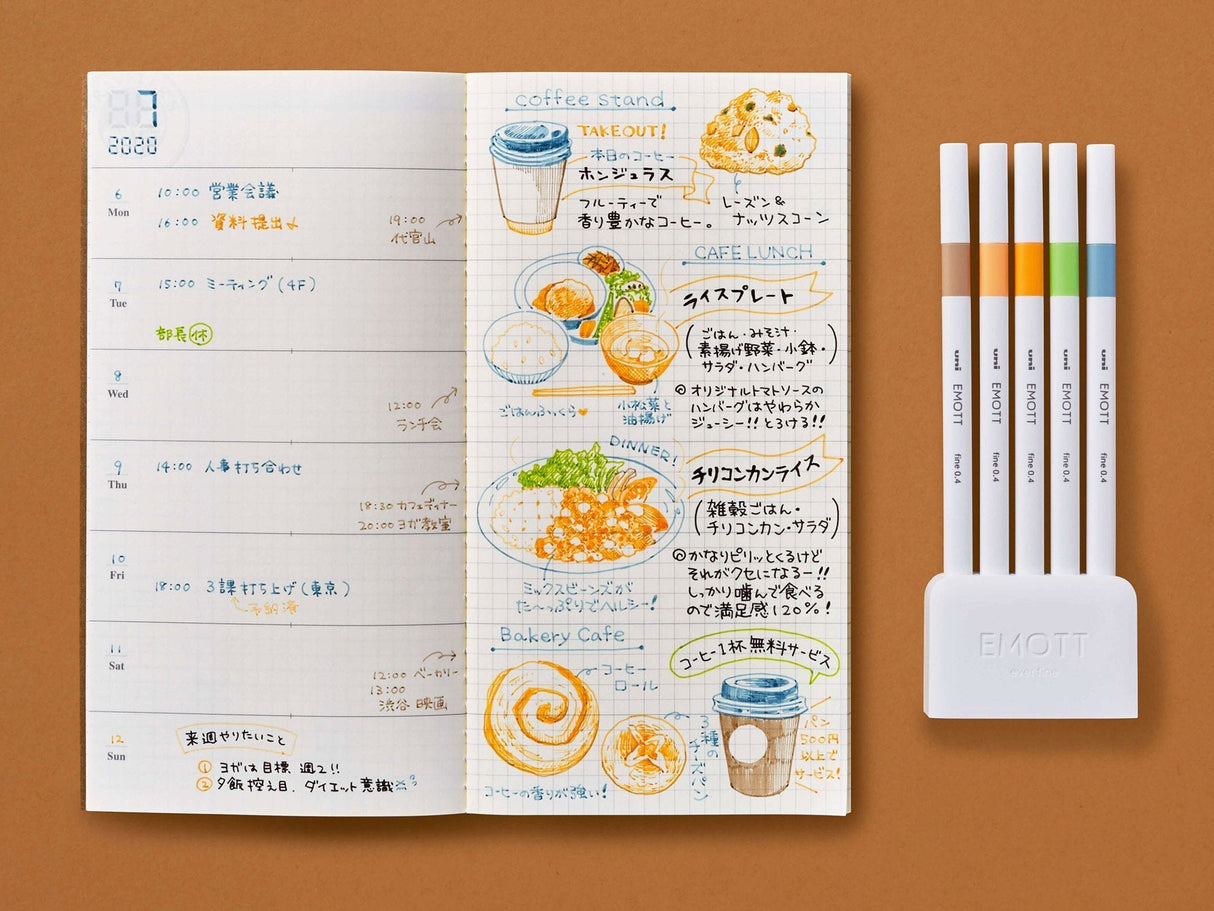 7
2020
6
Mon
10:00 営業会議
16:00 資料提出
19:00
代官山
7
Tue
15:00 ミーティング(4F)
部長休
8
Wed
12:00
ランチ会
9
Thu
14:00 人事打ち合わせ
18:30 カフェディナー
20:00 ヨガ教室
10
Fri
18:00 3課打ち上げ(東京)
11
Sat
12:00 ベーカリー
13:00
渋谷 映画
12
Sun
来週やりたいこと
① ヨガは目標 週2!!
② 夕飯控え目、ダイエット意識
coffee stand
TAKEOUT!
本日のコーヒー
ホンジュラス
フルーティーで
香り豊かなコーヒー。
レーズン&
ナッツスコーン
CAFE LUNCH
ライスプレート
(ごはん・みそ汁・
素揚げ野菜・小鉢・
サラダ・ハンバーグ)
◎オリジナルトマトソースの
ハンバーグはやわらか
ジューシー!! とろける!!
ごはんふっくら
小松菜と
油揚げ
DINNER!
チリコンカンライス
(雑穀ごはん・
チリコンカン・サラダ)
◎かなりピリッとくるけど
それがクセになるー!!
しっかり噛んで食べる
ので満足感120%!
ミックスビーンズが
た〜っぷりでヘルシー!
Bakery Cafe
コーヒー1杯無料サービス
コーヒー
ロール
3種の
チーズパン
パン
500円
以上で
サービス!
コーヒーの香りが強い!
uni EMOTT fine 0.4
uni EMOTT fine 0.4
uni EMOTT fine 0.4
uni EMOTT fine 0.4
uni EMOTT fine 0.4
EMOTT
ever fine